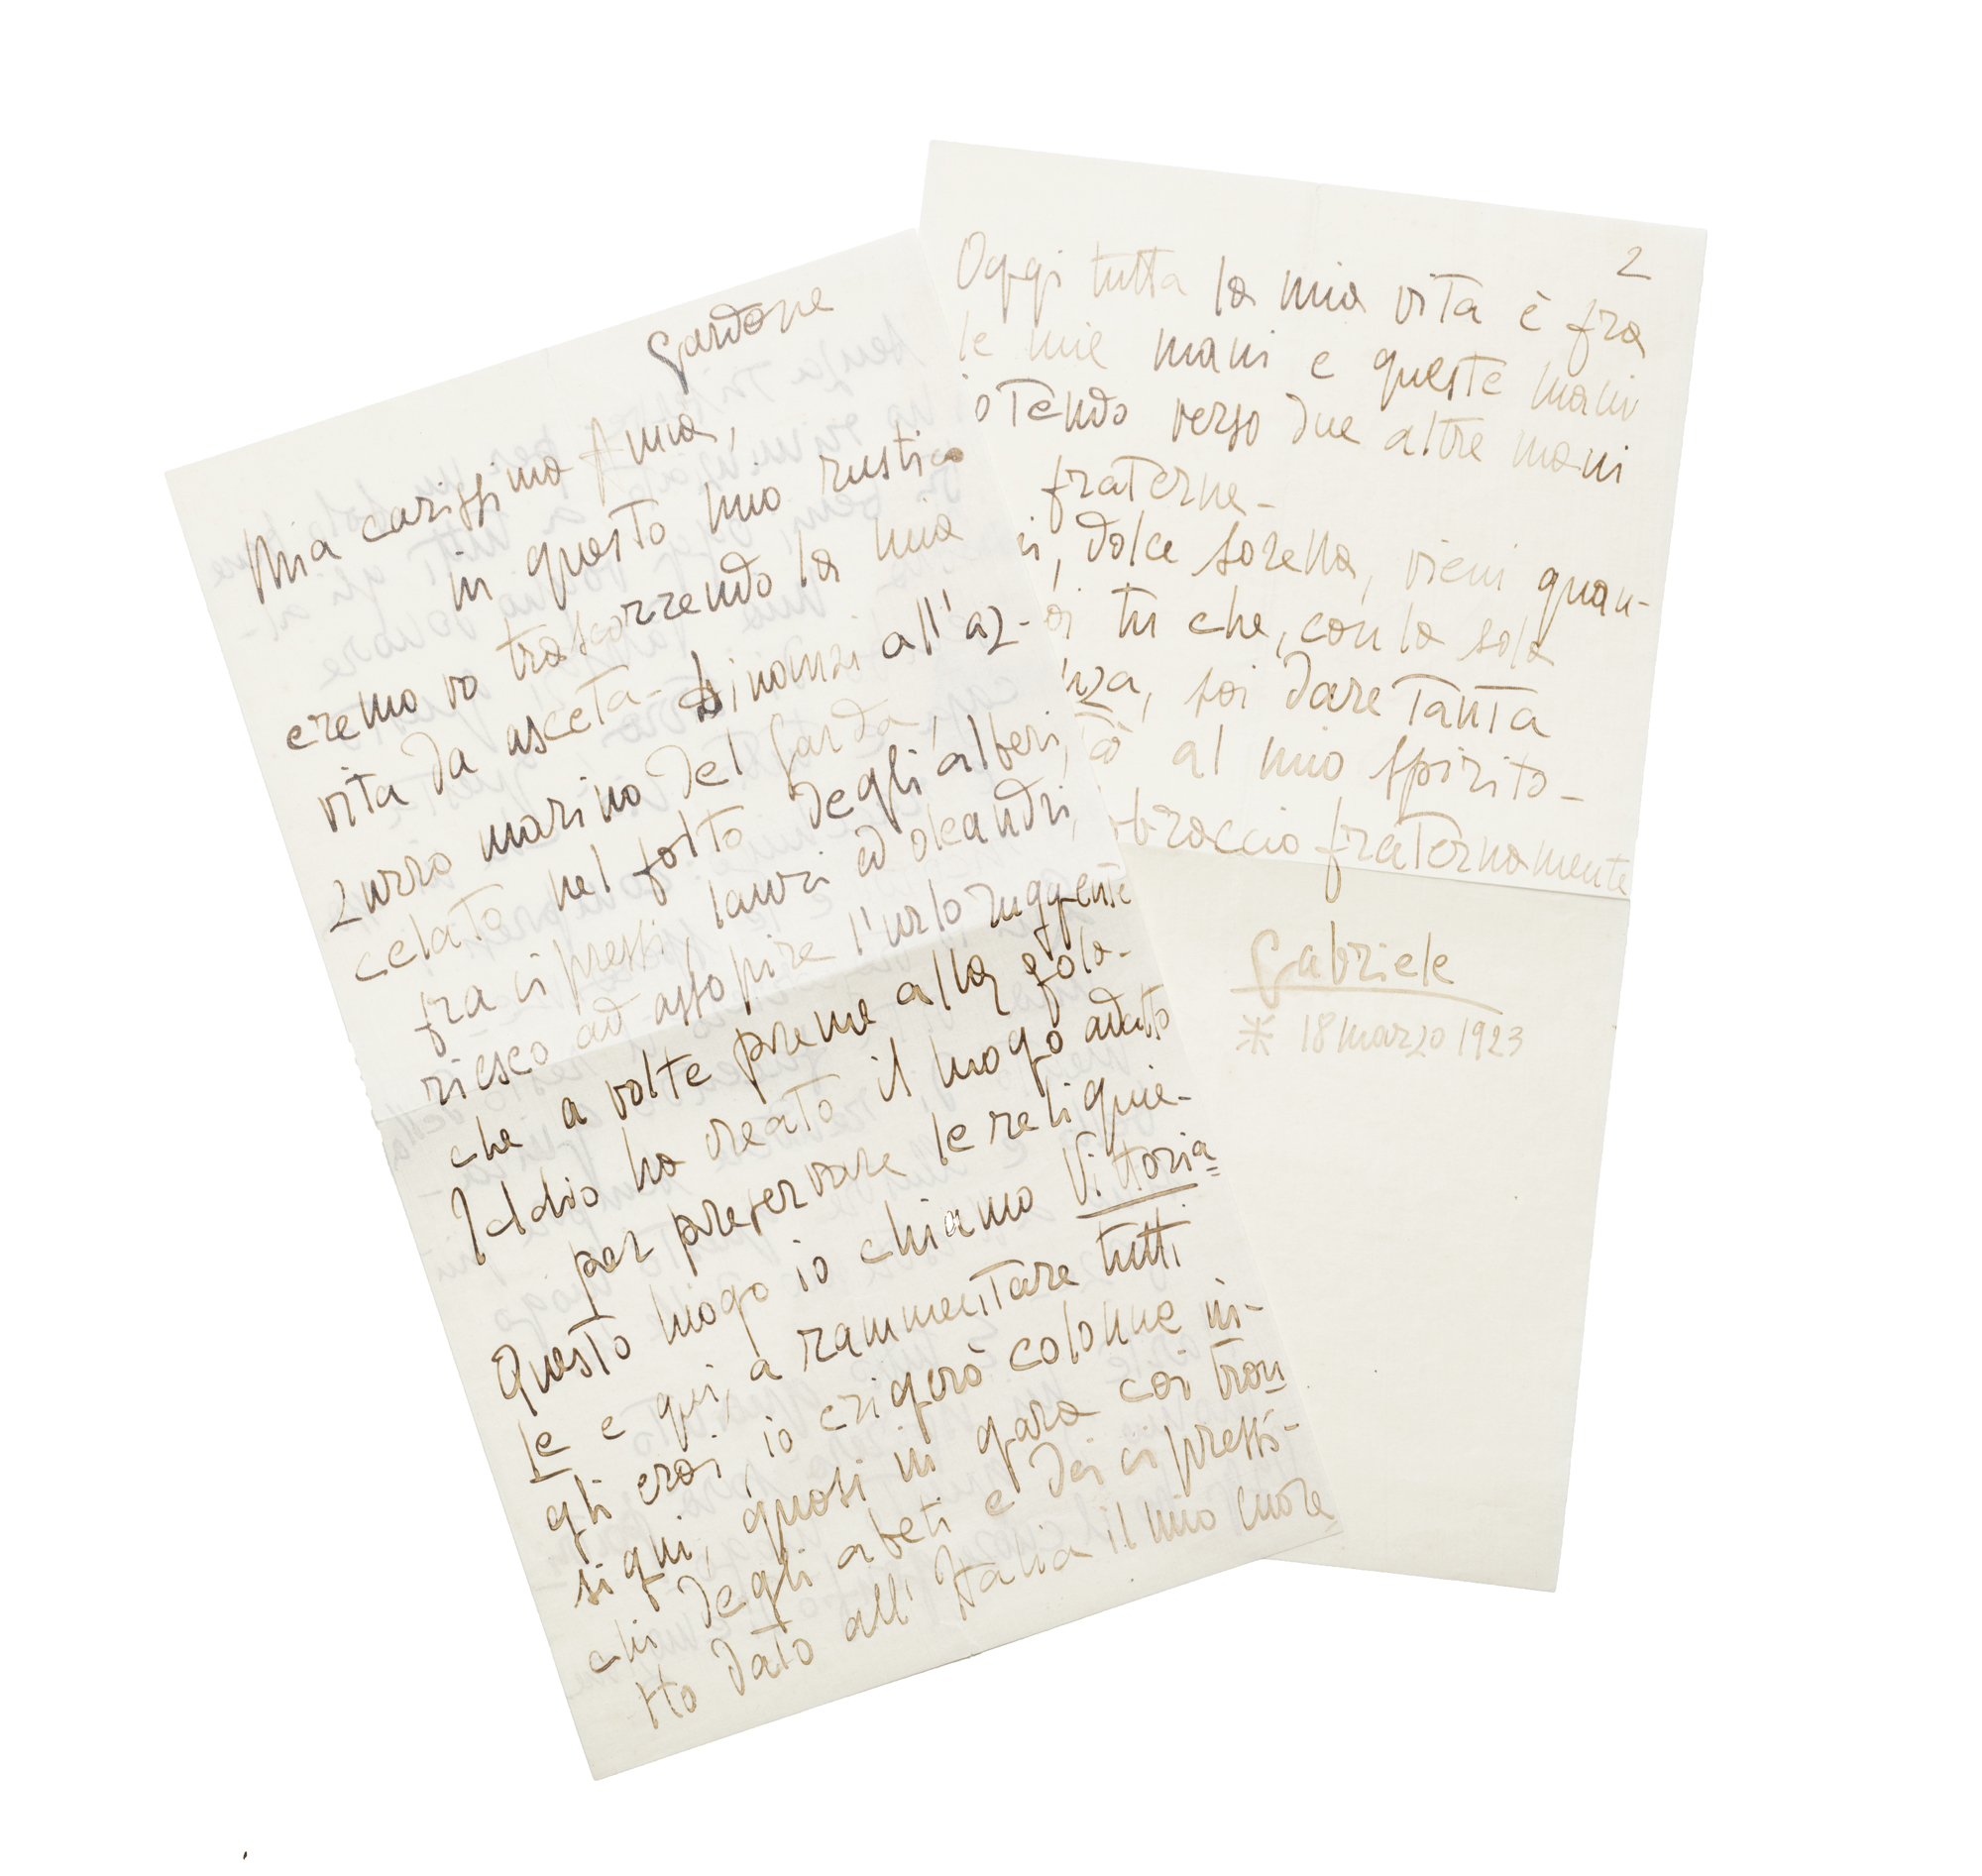 Gardone
Mia carissima Anna,
in questo mio rustico
eremo vo trascorrendo la mia
vita da asceta - Dinanzi all'az-
zurro marino del Garda,
celato nel folto degli alberi,
fra cipressi, lauri ed oleandri,
riesco ad assopire l'urlo ruggente
che a volte preme alla gola -
Iddio ha creato il luogo adatto
per preservare le reliquie -
Questo luogo io chiamo Vittoria=
le e qui, a rammentare tutti
gli eroi, io erigerò colonne in-
signi, quasi in gara coi tron
chi degli abeti e dei cipressi -
Ho dato all'Italia il mio cuore
2
Oggi tutta la mia vita è fra
le mie mani e queste mani
io tendo verso due altre mani
fraterne -
dolce sorella, vieni quan-
tu che, con la sola
sai dare tanta
al mio spirito -
abbraccio fraternamente
Gabriele
* 18 marzo 1923